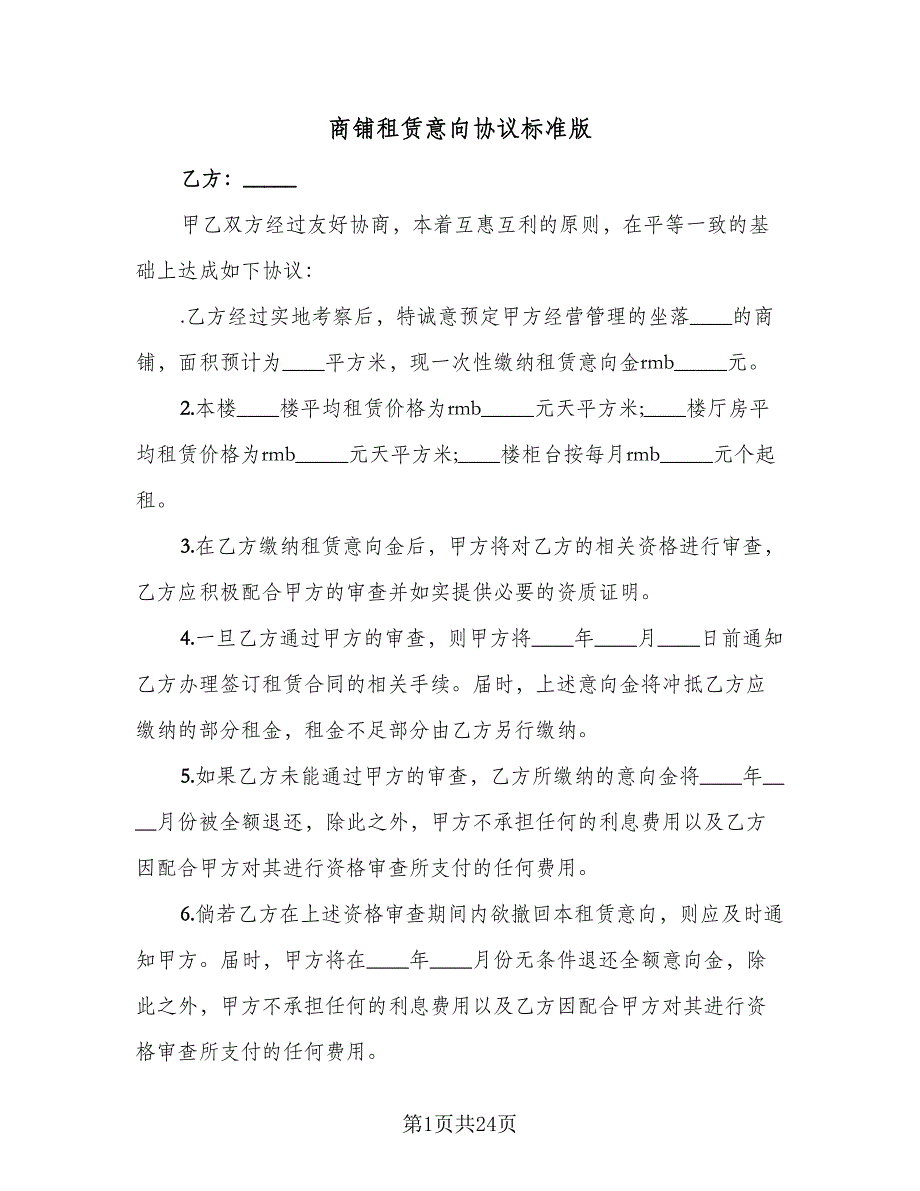 商铺租赁意向协议标准版
乙方：_____
甲乙双方经过友好协商，本着互惠互利的原则，在平等一致的基
础上达成如下协议：
.乙方经过实地考察后，特诚意预定甲方经营管理的坐落____的商
铺，面积预计为____平方米，现一次性缴纳租赁意向金rmb_____元。
2.本楼____楼平均租赁价格为rmb_____元天平方米;____楼厅房平
均租赁价格为rmb_____元天平方米;____楼柜台按每月rmb_____元个起
租。
3.在乙方缴纳租赁意向金后，甲方将对乙方的相关资格进行审查，
乙方应积极配合甲方的审查并如实提供必要的资质证明。
4.一旦乙方通过甲方的审查，则甲方将____年____月____日前通知
乙方办理签订租赁合同的相关手续。届时，上述意向金将冲抵乙方应
缴纳的部分租金，租金不足部分由乙方另行缴纳。
5.如果乙方未能通过甲方的审查，乙方所缴纳的意向金将____年__
__月份被全额退还，除此之外，甲方不承担任何的利息费用以及乙方
因配合甲方对其进行资格审查所支付的任何费用。
6.倘若乙方在上述资格审查期间内欲撤回本租赁意向，则应及时通
知甲方。届时，甲方将在____年____月份无条件退还全额意向金，除
此之外，甲方不承担任何的利息费用以及乙方因配合甲方对其进行资
格审查所支付的任何费用。
第1页共24页